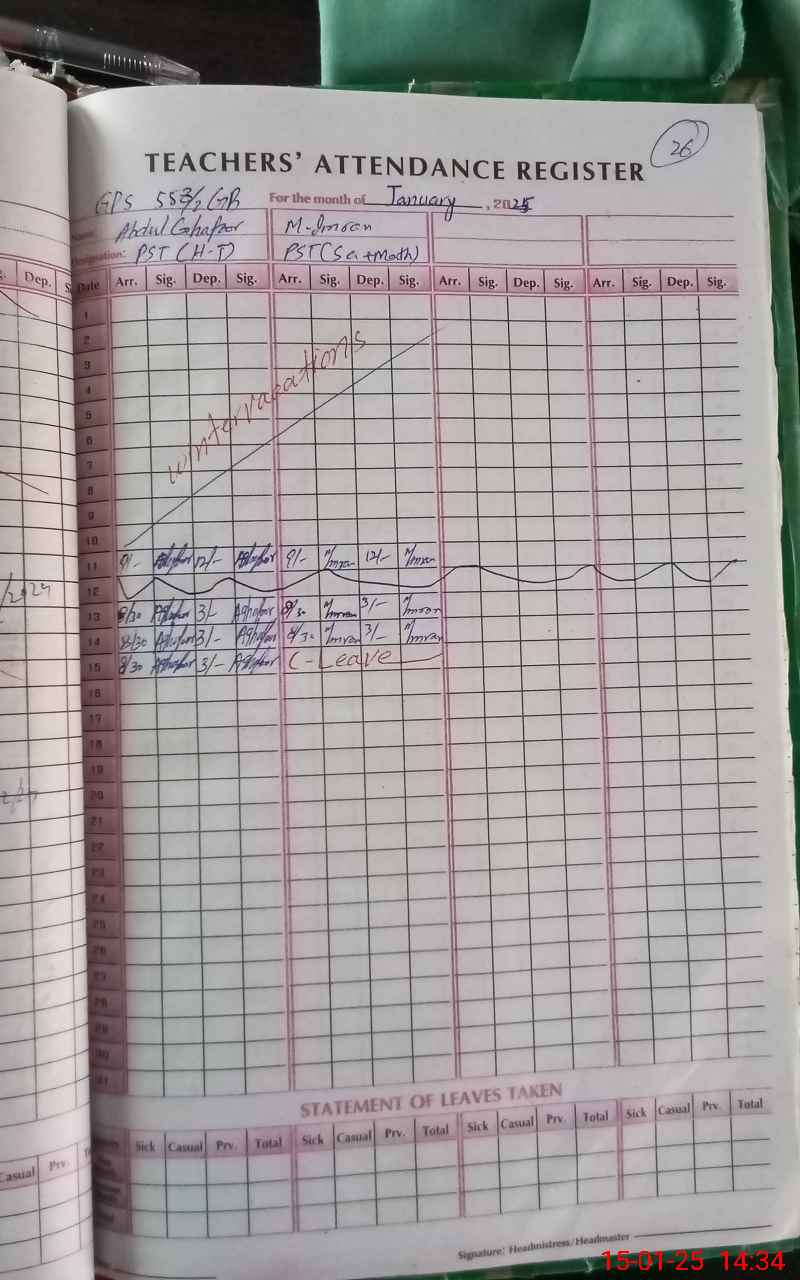 26
TEACHERS' ATTENDANCE REGISTER
GPS 553/2 GB For the month of January, 2025
Name: Abdul Ghafoor M-Imran
Designation: PST (H-T) PST (Sci+Math)
Dep.
Date Arr. Sig. Dep. Sig. Arr. Sig. Dep. Sig. Arr. Sig. Dep. Sig. Arr. Sig. Dep. Sig.
1
2
3
4
5
6
7
8
9
10
winter vacations
11 9/- AGhafoor 12/- AGhafoor 9/- M/Imran 12/- M/Imran
12
13 8/30 AGhafoor 3/- AGhafoor 8/30 M/Imran 3/- M/Imran
14 8/30 AGhafoor 3/- AGhafoor 8/30 M/Imran 3/- M/Imran
15 8/30 AGhafoor 3/- AGhafoor C-Leave
16
17
18
19
20
21
22
23
24
25
26
27
28
29
30
31
STATEMENT OF LEAVES TAKEN
Sick Casual Prv. Total Sick Casual Prv. Total Sick Casual Prv. Total Sick Casual Prv. Total
Casual Prv.
Signature: Headmistress/Headmaster
15-01-25 14:34